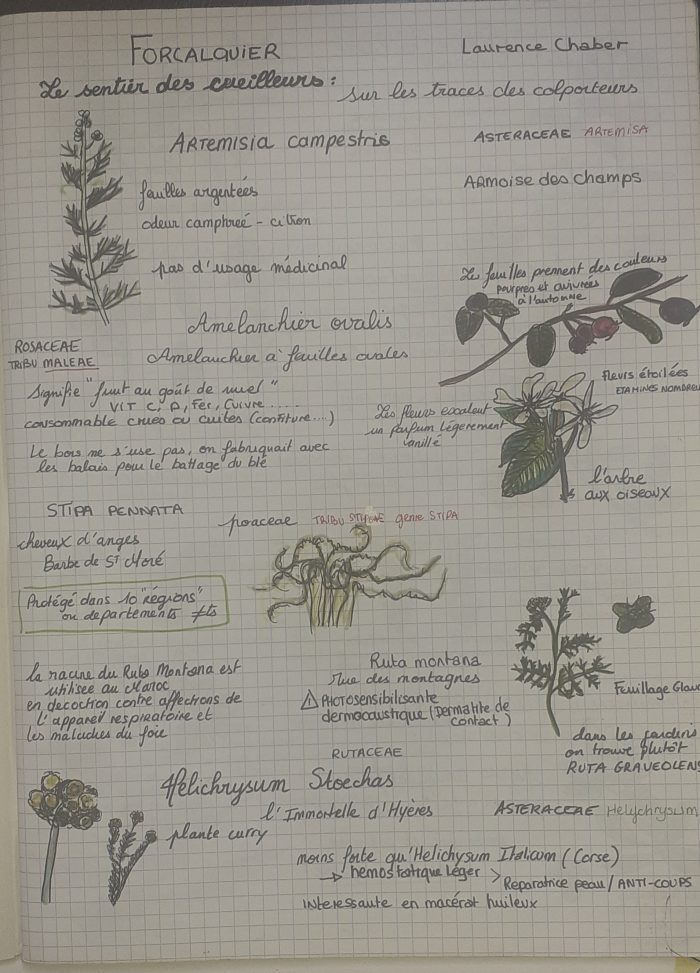 FORCALQUIER
Laurence Chaber
Le sentier des cueilleurs :
sur les traces des colporteurs
ARTEMISIA campestris
ASTERACEAE ARTEMISA
ARMoise des champs
feuilles argentées
odeur camphreé - citron
pas d'usage médicinal
Le feuilles prennent des couleurs
pourpres et cuivrées
à l'automne
Amelanchier ovalis
ROSACEAE
TRIBU MALEAE
Amelanchier à feuilles ovales
Signifie "fruit au goût de miel"
VIT C, A, Fer, Cuivre.....
consommable crues ou cuites (confiture....)
fleurs étoilées
ETAMINES NOMBREU
Les fleurs exhalent
un parfum légèrement
vanillé
Le bois ne s'use pas, on fabriquait avec
les balais pour le battage du blé
l'arbre
aux oiseaux
STIPA PENNATA
poaceae TRIBU STIPEAE genre STIPA
cheveux d'anges
Barbe de ST Moré
Protégé dans 10 "régions"
ou departements ≠ts
Ruta montana
rue des montagnes
⚠ PHOTOSENSIBILISANTE
dermocaustique (Dermatite de
contact)
RUTACEAE
la racine du Ruta Montana est
utilisée au Maroc
en decoction contre affections de
l'appareil respiratoire et
les maladies du foie
Feuillage Glau
dans les jardins
on trouve plutôt
RUTA GRAVEOLENS
Helichrysum Stoechas
l'Immortelle d'Hyères
ASTERACEAE Helychrysum
plante curry
moins forte qu'Helichysum Italicum (Corse)
→ hemostatique léger > Reparatrice peau / ANTI-COUPS
INTERESSANTE en macérat huileux